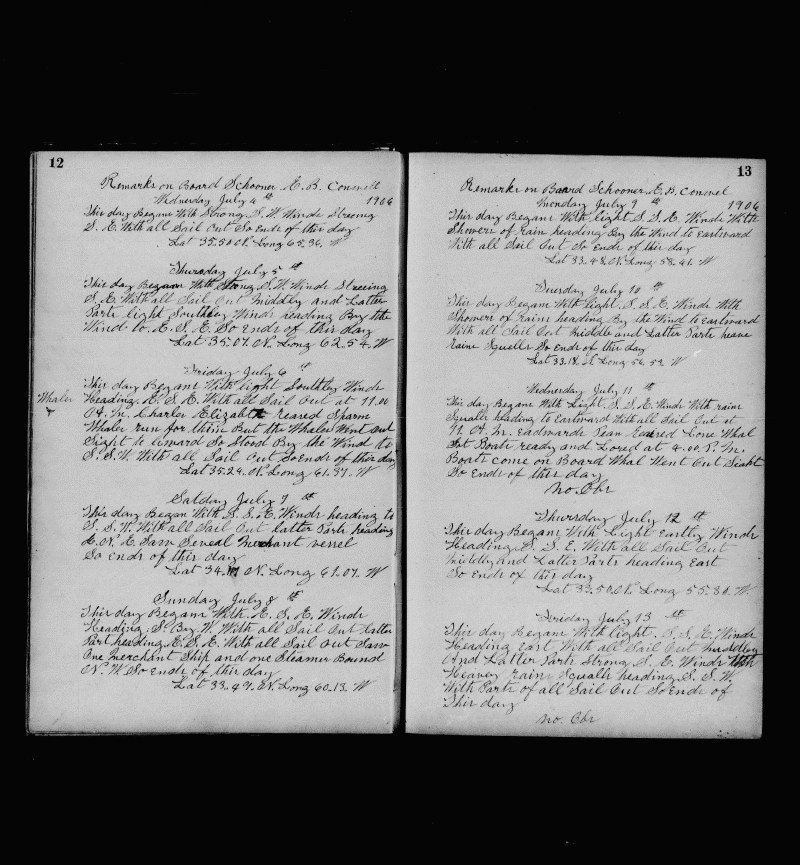 12
Remarks on Board Schooner E. B. Conwell
Wednesday July 4th 1906
This day Began With Strong S. W. Winds Steering
S. E. With all Sail Out So Ends of this day
Lat 35.50. N. Long 65.36. W
Thursday July 5th
This day Began With Strong S. W. Winds Steering
S. E. With all Sail Out Middly and Latter
Parts light Southley Winds heading By the
Wind to E. S. E. So Ends of this day
Lat 35.07. N. Long 62.54. W
Friday July 6th
This day Began With light Southley Winds
Heading E. S. E. With all Sail Out at 11.00
A. M. Charles Elizabth reared Sparm
Whaler
Whales run for them But the Whales Went Out
Sight to Winard So Stood By the Wind to
S. S. W. With all Sail Out So Ends of this day
Lat 35.24. N. Long 61.37. W
Satday July 7th
This day Began With S. S. E. Winds heading to
S. S. W. With all Sail Out latter Parts heading
E. N. E. Saw Seveal Merchant vessel
So ends of this day
Lat 34. N. Long 61.07. W
Sunday July 8th
This day Began With E. S. E. Winds
Heading S. By. W. With all Sail Out Latter
Part heading E. S. E. With all Sail Out Saw
One Merchant Ship and one Steamer Bound
N. W. So Ends of this day
Lat 33.47. N. Long 60.13. W
13
Remarks on Board Schooner E. B. Conwel
Monday July 9th 1906
This day Began With light S. S. E. Winds With
Showers of rain heading By the Wind to Eastward
With all Sail Out So Ends of this day
Lat 33.48. N. Long 58.41. W
Tuesday July 10th
This day Began With light S. S. E. Winds With
Showers of rains heading By the Wind to Eastward
With all Sail Out Middle and Latter Parts heave
raine Squells So Ends of this day
Lat 33.18. N Long 56.59. W
Wednesday July 11th
This day Began With Light S. S. E. Winds With rain
Squalls heading to Eastward With all Sail Out at
11 A. M. Eadwards Sean Lone Whal
Got Boats ready and Lored at 4.00. P. M.
Boats come on Board Whal Went Out Sight
So Ends of this day
No. Obs
Thursday July 12th
This day Began With Light Eastly Winds
Heading S. S. E. With all Sail Out
Middly and Latter Parts heading East
So Ends of this day
Lat 33.50. N. Long 55.30. W.
Friday July 13th
This day Began With light S. S. E. Winds
Heading East With all Sail Out Middley
And Latter Parts Strong S. E. Winds With
Heavey raine Squalls heading S. S. W.
With Parts of all Sail Out So Ends of
This day
No. Obs